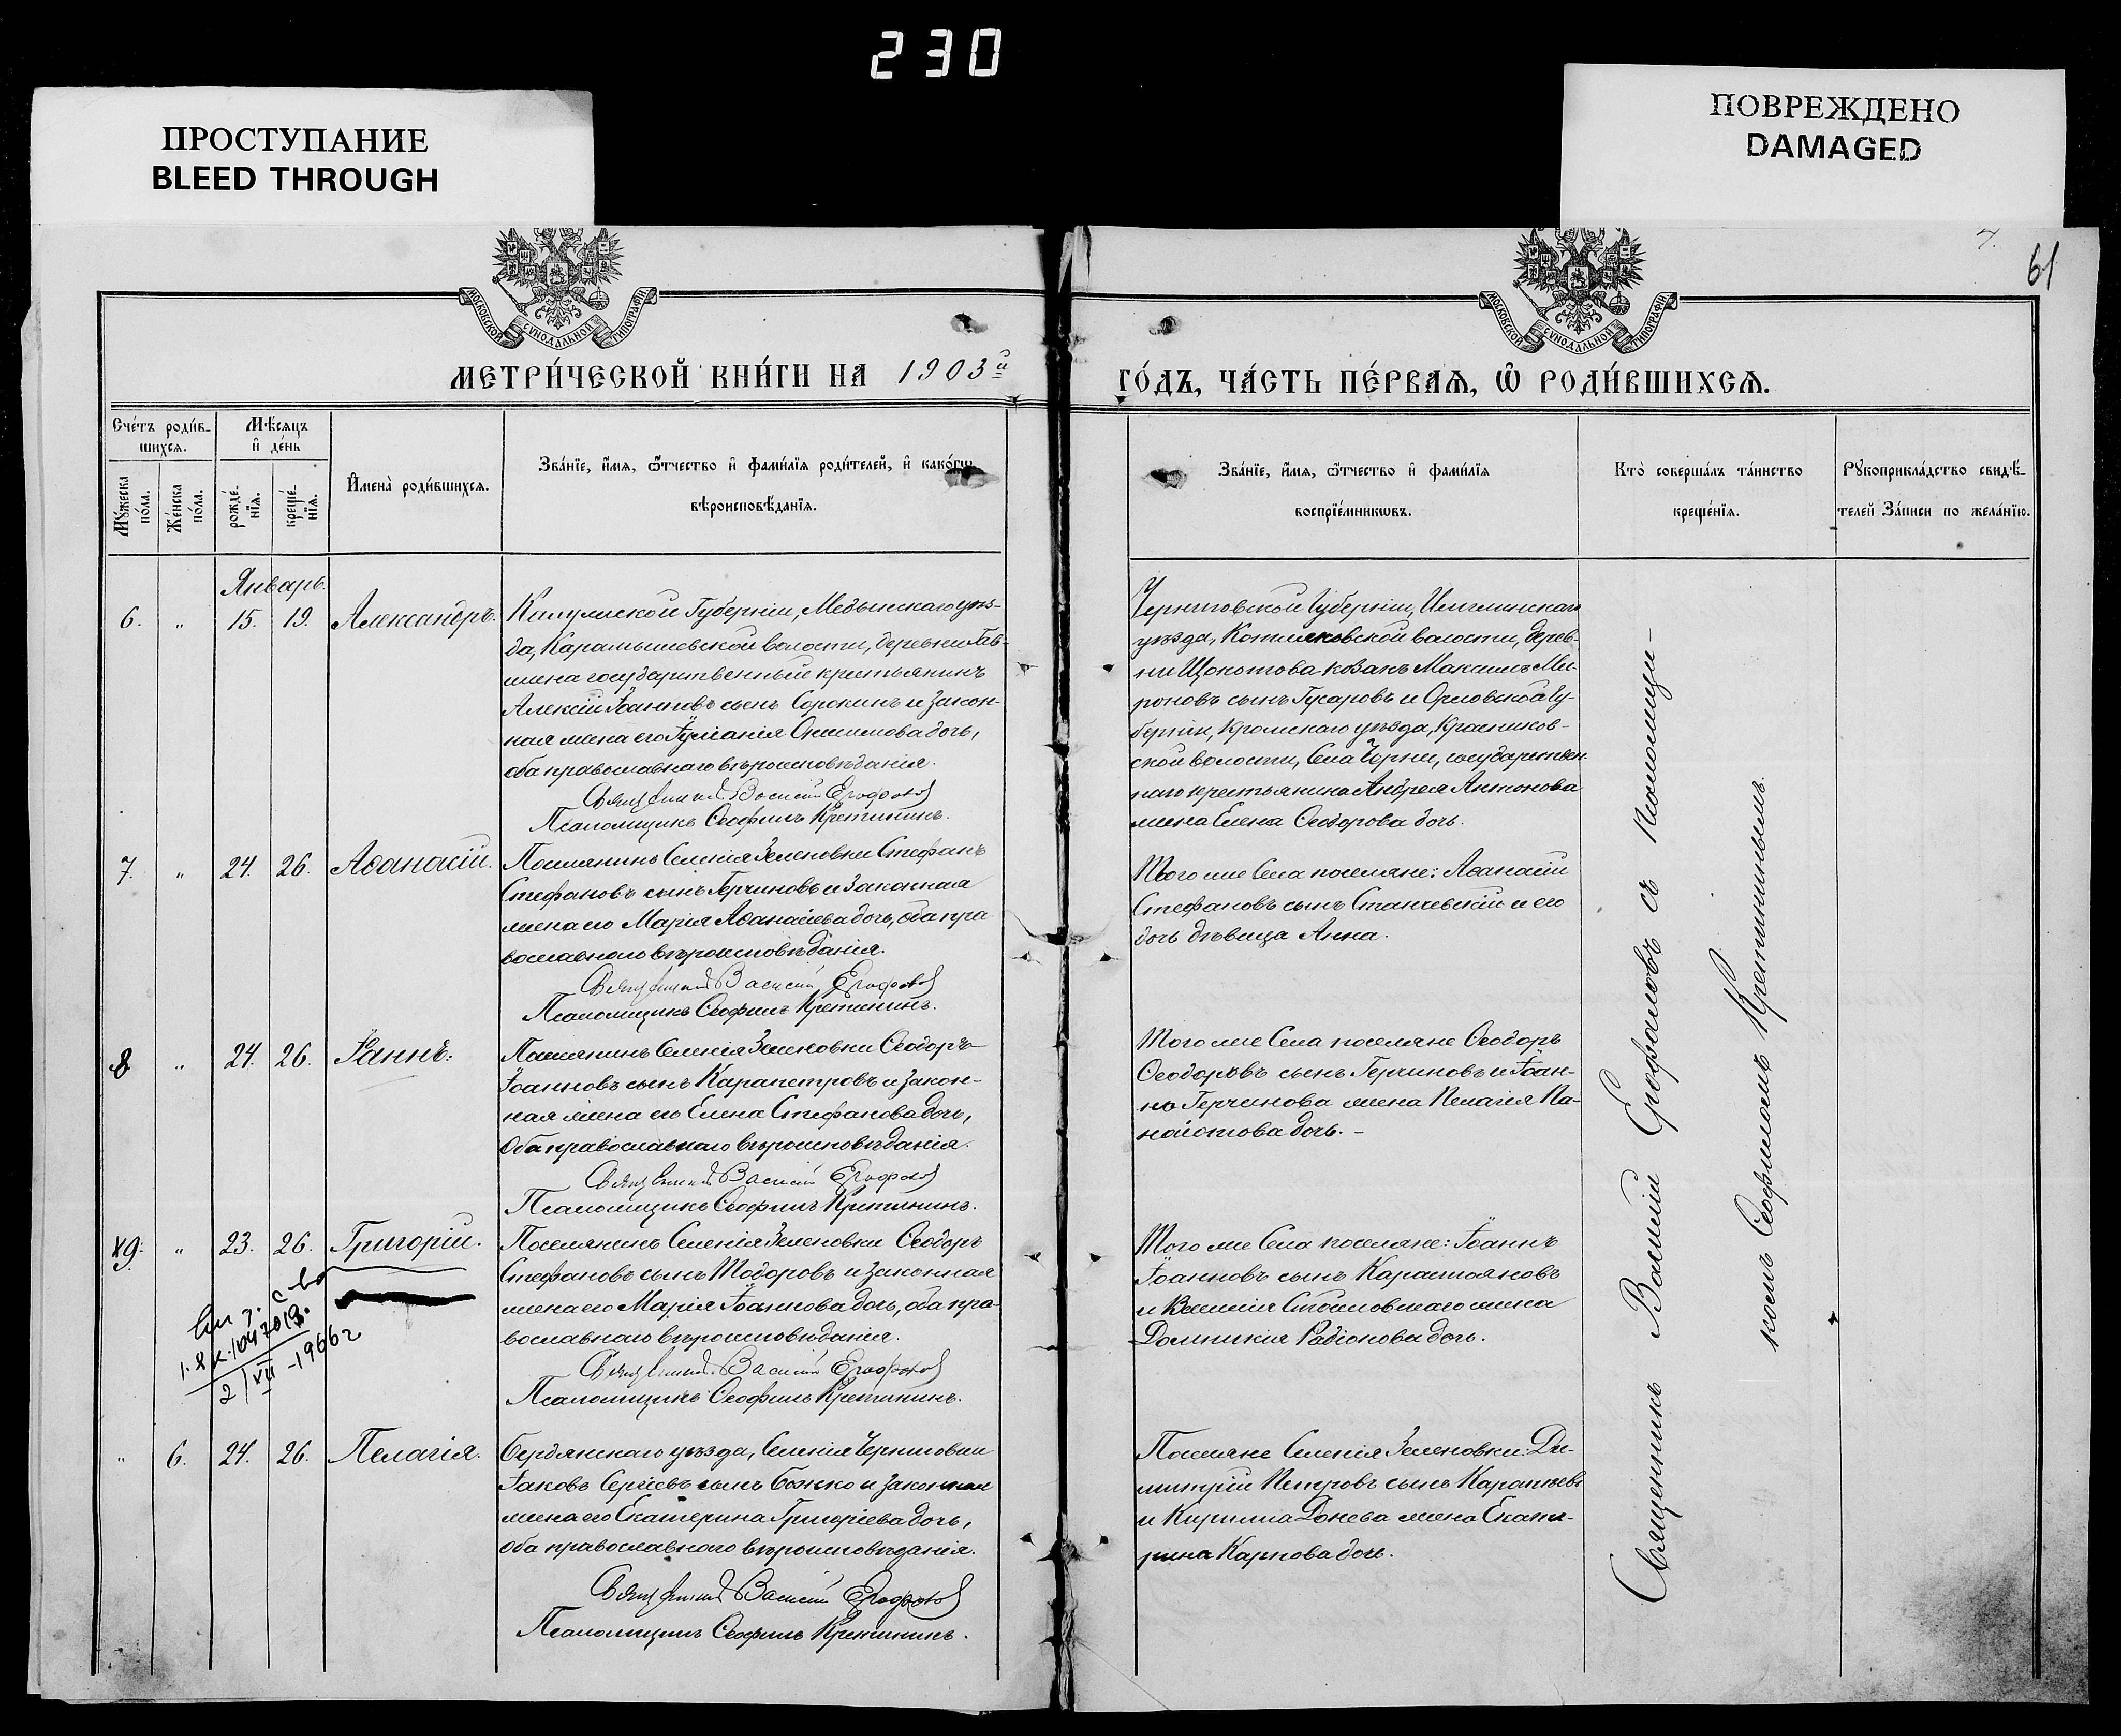 230
ПРОСТУПАНИЕ
BLEED THROUGH
ПОВРЕЖДЕНО
DAMAGED
7.
61
МОСКОВСКОЙ СѴНОДАЛЬНОЙ ТИПОГРАФІИ
МОСКОВСКОЙ СѴНОДАЛЬНОЙ ТИПОГРАФІИ
МЕТРИ́ЧЕСКОЙ КНИ́ГИ НА 1903й ГО́ДЪ, ЧА́СТЬ ПЕ́РВАЯ, Ѡ РОДИ́ВШИХСЯ.
Сче́тъ роди́в-
шихся.
Мѣ́сяцъ
и де́нь
Му́жеска
по́ла.
Же́нска
по́ла.
рожде́-
нїя.
креще́-
нїя.
Имена̀ роди́вшихся.
Зва́нїе, и́мя, ѻ́тчество и фами́лїя роди́телей, и како́гѡ
вѣроисповѣ́данїя.
Зва́нїе, и́мя, ѻ́тчество и фами́лїя
воспрїе́мникѡвъ.
Кто̀ соверша́лъ та́инство
креще́нїя.
Рꙋкоприкла́дство свидѣ́-
телей За́писи по жела́нїю.
Январь.
6. " 15. 19. Александръ.
Калужской Губерніи, Медынскаго уѣз-
да, Карамышевской волости, деревни
жена государственный крестьянинъ
Алексій Іоанновъ сынъ Сорокинъ и закон-
ная жена его Іуліанія Онисимова дочь,
оба православнаго вѣроисповѣданія.
Священникъ Василій Ерофаловъ
Псаломщикъ Ѳеофилъ Кретининъ.
Черниговской Губерніи,
уѣзда, волости, дерев-
ни козакъ Максимъ Ми-
роновъ сынъ Гусаровъ и Орловской Гу-
берніи, Кромскаго уѣзда,
ской волости, Села Чорни, государствен-
наго крестьянина Андрея Антонова
жена Елена Ѳеодорова дочь.
7. " 24. 26. Аѳанасій.
Поселянинъ Селенія Зеленовки Стефанъ
Стефановъ сынъ Герчиновъ и законная
жена его Марія Аѳанасіева дочь, оба пра
вославнаго вѣроисповѣданія.
Священникъ Василій Ерофаловъ
Псаломщикъ Ѳеофилъ Кретининъ.
Того же Села поселяне: Аѳанасій
Стефановъ сынъ Станчевскій и его
дочь дѣвица Анна.
8 " 24. 26. Іоаннъ.
Поселянинъ Селенія Зеленовки Ѳеодоръ
Іоанновъ сынъ Карапетровъ и закон-
ная жена его Елена Стефанова дочь,
Оба православнаго вѣроисповѣданія.
Священникъ Василій Ерофаловъ
Псаломщикъ Ѳеофилъ Кретининъ.
Того же Села поселяне Ѳеодоръ
Ѳеодоровъ сынъ Герчиновъ и Іоан-
на Герчинова жена Пелагія Па-
найотова дочь. –
9. " 23. 26. Григорій.
Поселянинъ Селенія Зеленовки Ѳеодоръ
Стефановъ сынъ Тодоровъ и законная
жена его Марія Іоаннова дочь, оба пра-
вославнаго вѣроисповѣданія.
Священникъ Василій Ерофаловъ
Псаломщикъ Ѳеофилъ Кретининъ.
Того же Села поселяне: Іоаннъ
Іоанновъ сынъ Карастояновъ
и Василія жена
Домникія Радіонова дочь.
2/VII-1966г
" 6. 24. 26. Пелагія.
Бердянскаго уѣзда, Селенія Черниговки
Іаковъ Сергіевъ сынъ Божко и законная
жена его Екатерина Григоріева дочь,
оба православнаго вѣроисповѣданія.
Священникъ Василій Ерофаловъ
Псаломщикъ Ѳеофилъ Кретининъ.
Поселяне Селенія Зеленовки: Ди-
митрій Петровъ сынъ
и Кирилла Донева жена Екате-
рина Карпова дочь.
Священникъ Василій Ерофаловъ съ псаломщи-
комъ Ѳеофиломъ Кретининымъ.